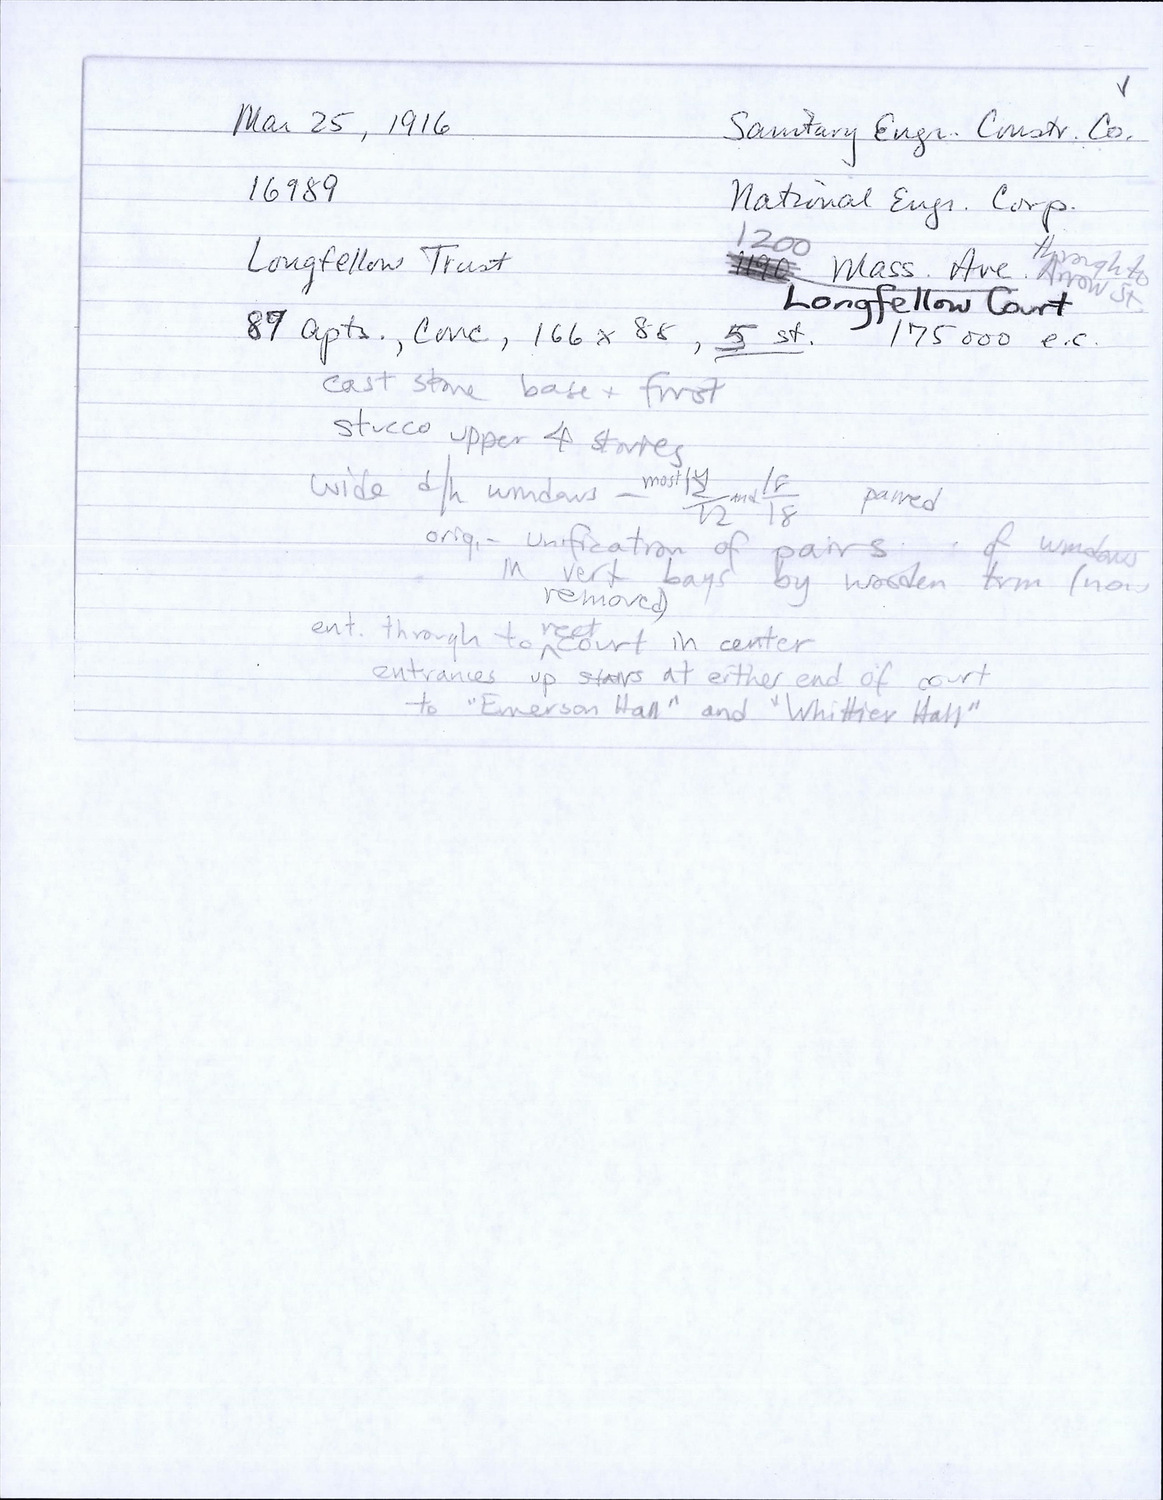 Mar 25, 1916
Sanitary Engr. Constr. Co.
16989
National Engr. Corp.
1200
1190 Mass. Ave. through to Arrow St.
Longfellow Trust
Longfellow Court
87 apts., Conc, 166 x 88, 5 st. 175000 e.c.
cast stone base + first
stucco upper 4 stories
wide d/h windows – most 12/12 and 18/18 paired
orig. – unification of pairs of windows
in vert bays by wooden trim (now
removed)
ent. through to rect court in center
entrances up stairs at either end of court
to "Emerson Hall" and "Whittier Hall"